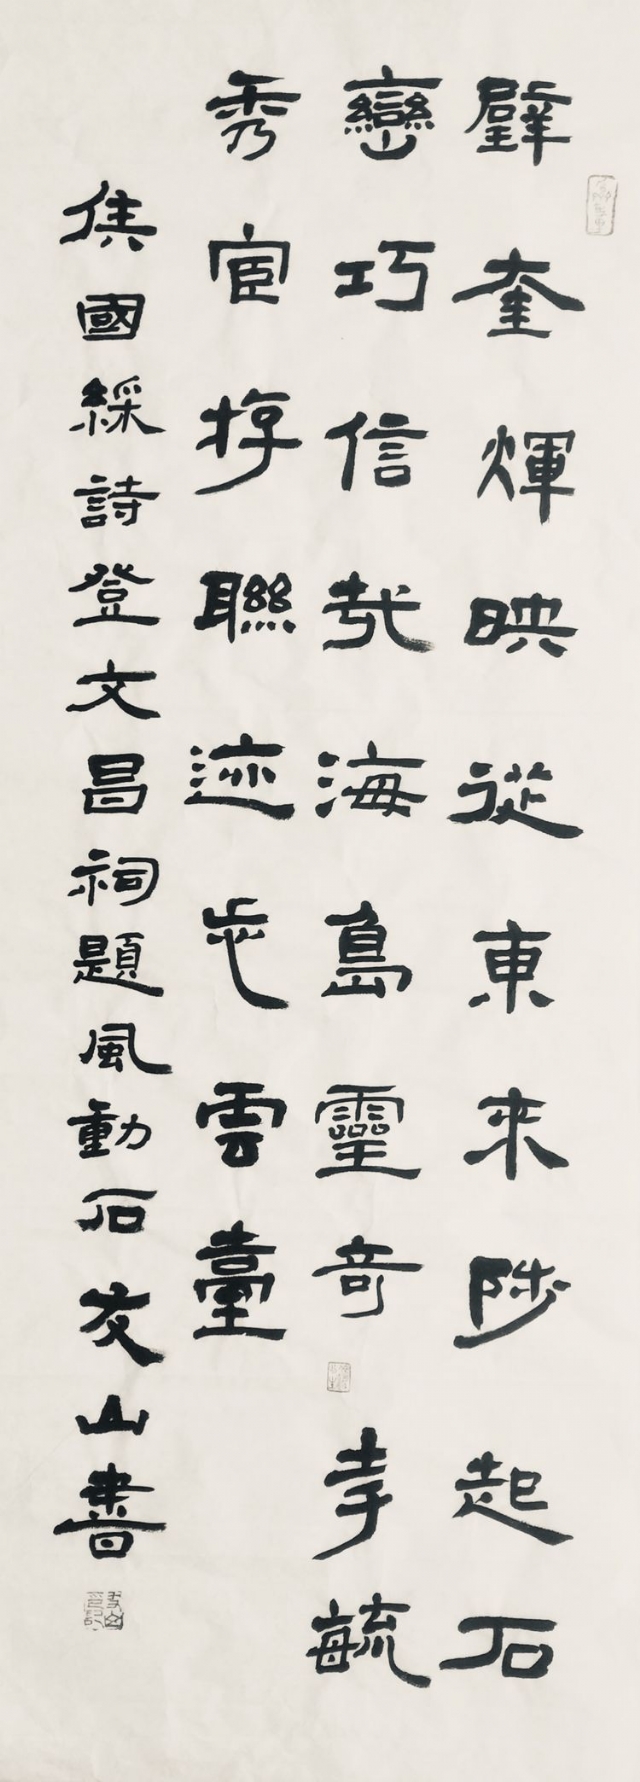 壁奎煇映從東來陟起石
巒巧信哉海島靈奇孝毓
秀宦游聯迹步雲臺
侯國綵詩登文昌祠題風動石友山書